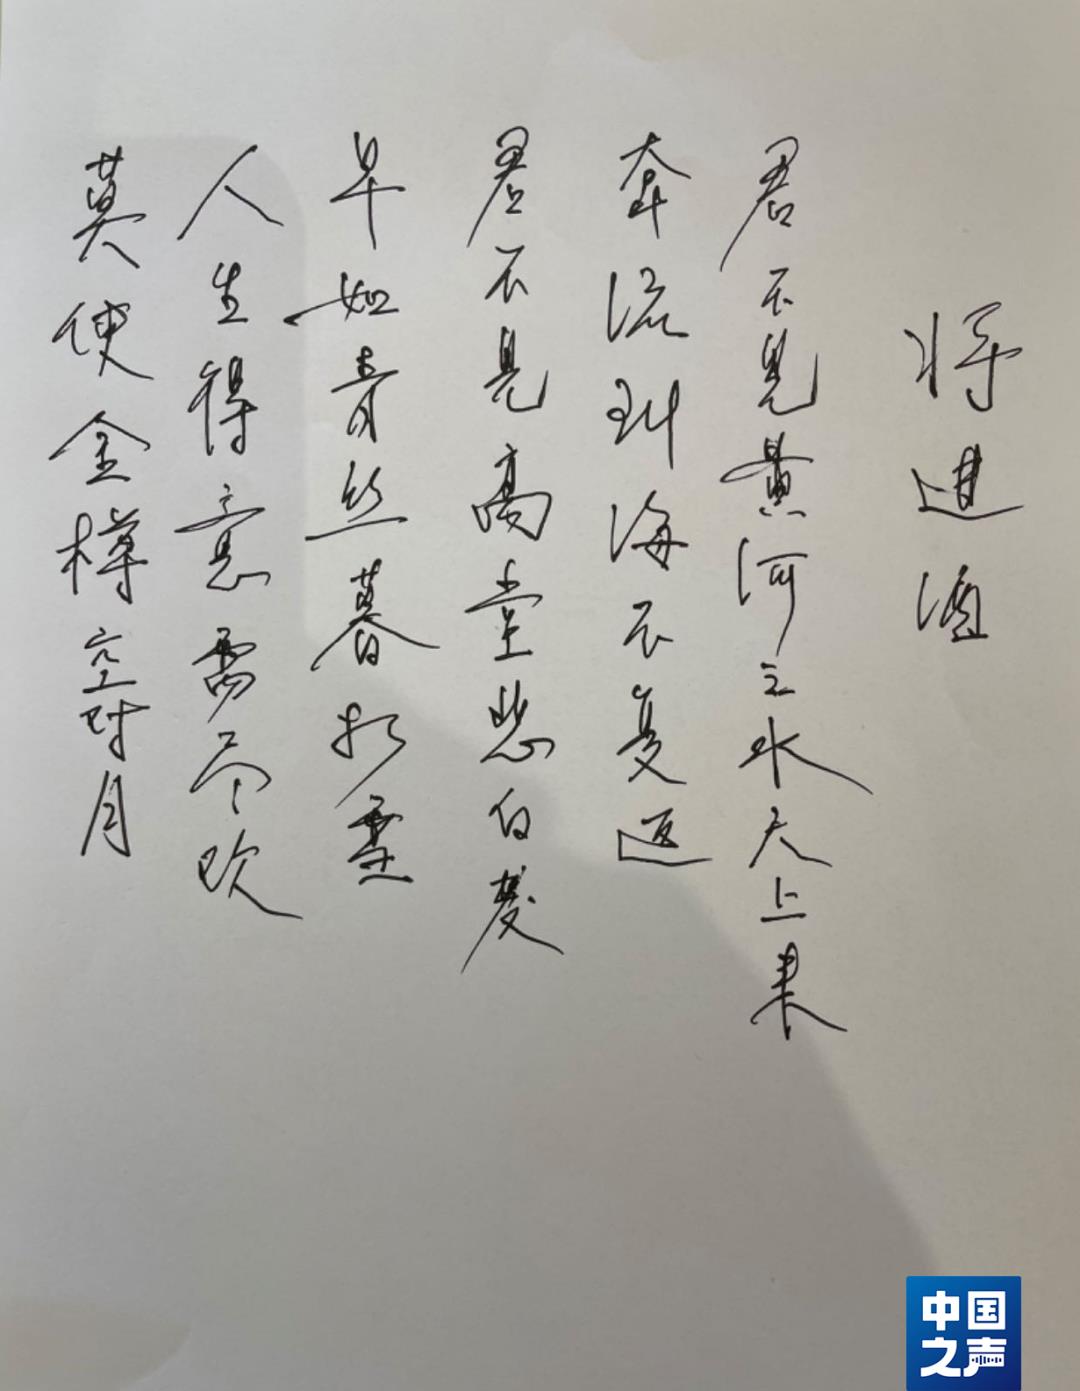 将进酒
君不见黄河之水天上来
奔流到海不复返
君不见高堂悲白发
早如青丝暮雪
人生得意需尽欢
莫使金樽空对月
中国
之声